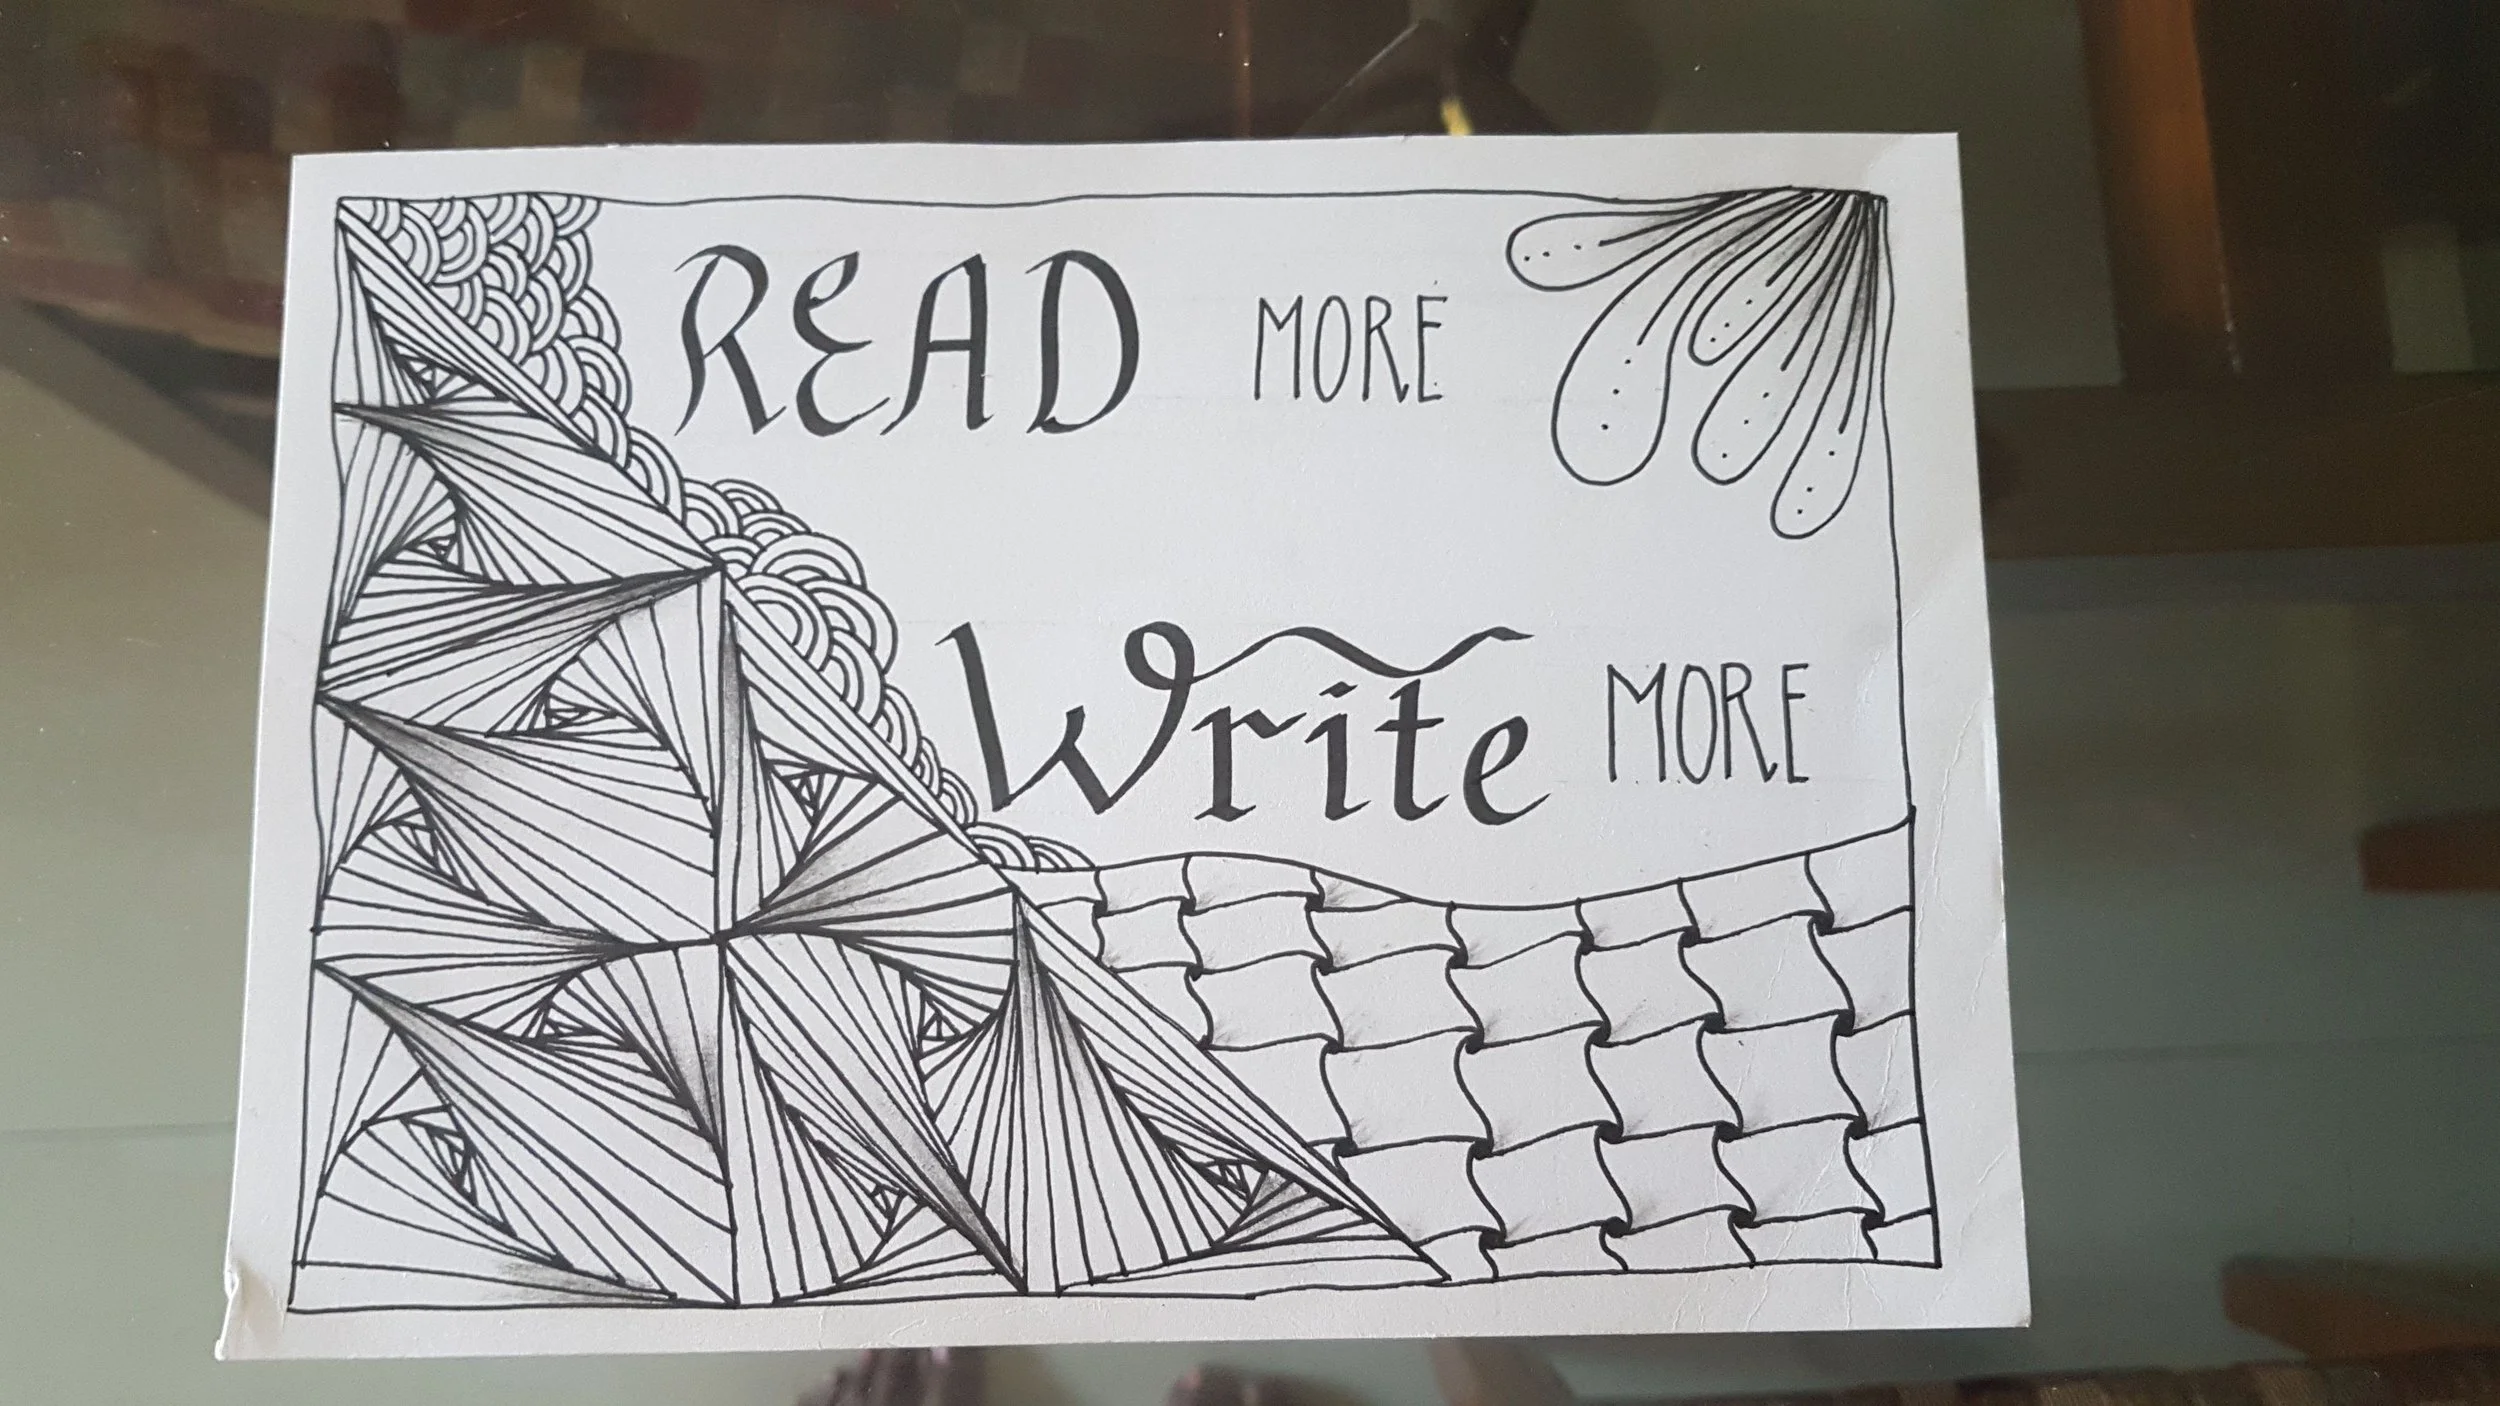 READ MORE
Write MORE